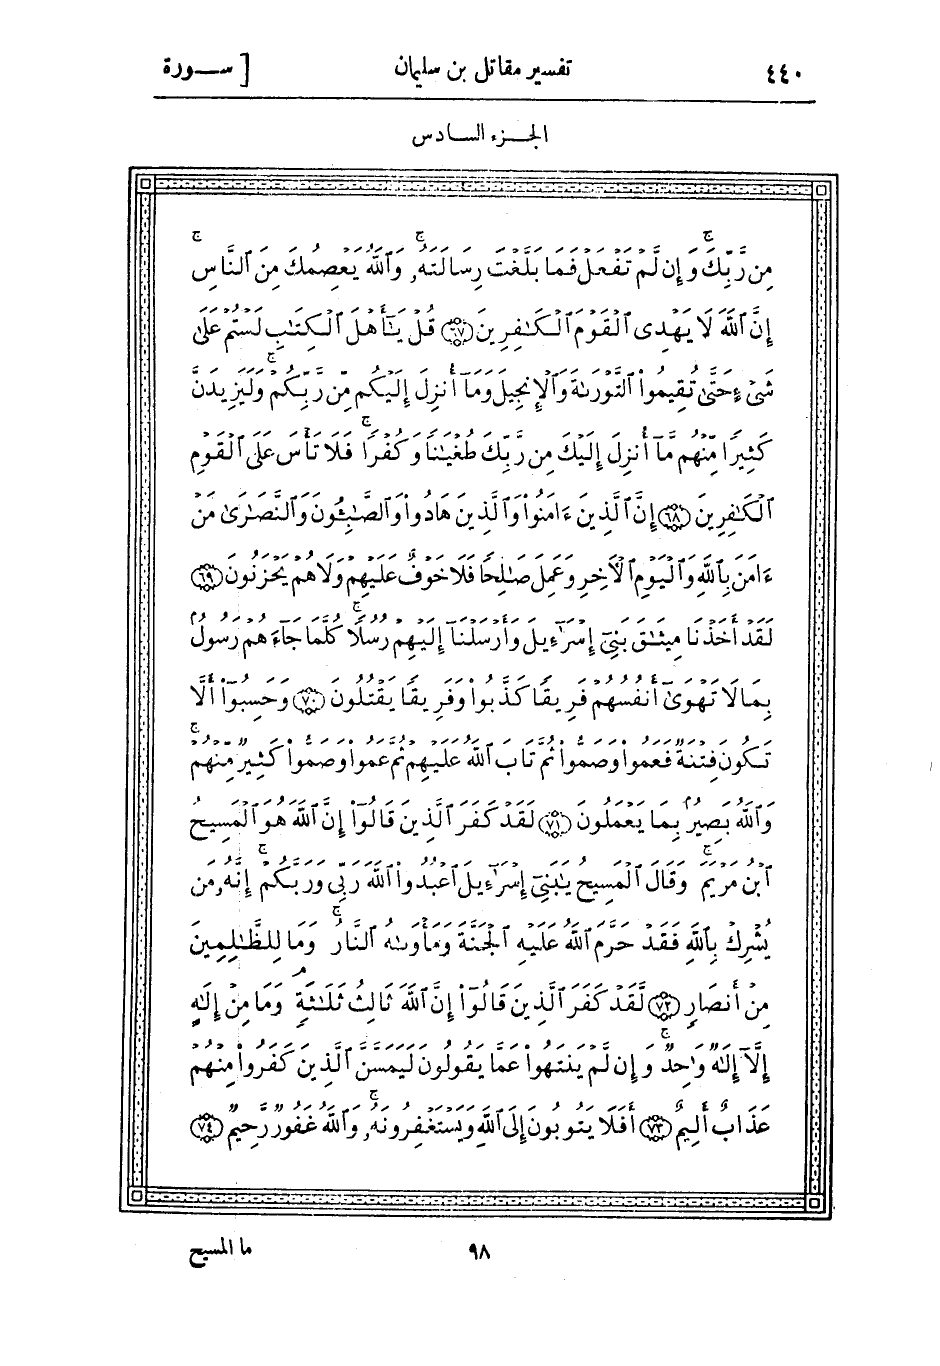 ٤٤٠ تفسير مقاتل بن سليمان [ ســورة
الجـزء السادس
مِن رَّبِّكَ ۖ وَإِن لَّمْ تَفْعَلْ فَمَا بَلَّغْتَ رِسَالَتَهُۥ ۚ وَٱللَّهُ يَعْصِمُكَ مِنَ ٱلنَّاسِ ۗ
إِنَّ ٱللَّهَ لَا يَهْدِى ٱلْقَوْمَ ٱلْكَٰفِرِينَ ﴿٦٧﴾ قُلْ يَٰٓأَهْلَ ٱلْكِتَٰبِ لَسْتُمْ عَلَىٰ
شَىْءٍ حَتَّىٰ تُقِيمُوا۟ ٱلتَّوْرَىٰةَ وَٱلْإِنجِيلَ وَمَآ أُنزِلَ إِلَيْكُم مِّن رَّبِّكُمْ ۗ وَلَيَزِيدَنَّ
كَثِيرًا مِّنْهُم مَّآ أُنزِلَ إِلَيْكَ مِن رَّبِّكَ طُغْيَٰنًا وَكُفْرًا ۖ فَلَا تَأْسَ عَلَى ٱلْقَوْمِ
ٱلْكَٰفِرِينَ ﴿٦٨﴾ إِنَّ ٱلَّذِينَ ءَامَنُوا۟ وَٱلَّذِينَ هَادُوا۟ وَٱلصَّٰبِـُٔونَ وَٱلنَّصَٰرَىٰ مَنْ
ءَامَنَ بِٱللَّهِ وَٱلْيَوْمِ ٱلْءَاخِرِ وَعَمِلَ صَٰلِحًا فَلَا خَوْفٌ عَلَيْهِمْ وَلَا هُمْ يَحْزَنُونَ ﴿٦٩﴾
لَقَدْ أَخَذْنَا مِيثَٰقَ بَنِىٓ إِسْرَٰٓءِيلَ وَأَرْسَلْنَآ إِلَيْهِمْ رُسُلًا ۖ كُلَّمَا جَآءَهُمْ رَسُولٌۢ
بِمَا لَا تَهْوَىٰٓ أَنفُسُهُمْ فَرِيقًا كَذَّبُوا۟ وَفَرِيقًا يَقْتُلُونَ ﴿٧٠﴾ وَحَسِبُوٓا۟ أَلَّا
تَكُونَ فِتْنَةٌ فَعَمُوا۟ وَصَمُّوا۟ ثُمَّ تَابَ ٱللَّهُ عَلَيْهِمْ ثُمَّ عَمُوا۟ وَصَمُّوا۟ كَثِيرٌ مِّنْهُمْ ۚ
وَٱللَّهُ بَصِيرٌۢ بِمَا يَعْمَلُونَ ﴿٧١﴾ لَقَدْ كَفَرَ ٱلَّذِينَ قَالُوٓا۟ إِنَّ ٱللَّهَ هُوَ ٱلْمَسِيحُ
ٱبْنُ مَرْيَمَ ۖ وَقَالَ ٱلْمَسِيحُ يَٰبَنِىٓ إِسْرَٰٓءِيلَ ٱعْبُدُوا۟ ٱللَّهَ رَبِّى وَرَبَّكُمْ ۖ إِنَّهُۥ مَن
يُشْرِكْ بِٱللَّهِ فَقَدْ حَرَّمَ ٱللَّهُ عَلَيْهِ ٱلْجَنَّةَ وَمَأْوَىٰهُ ٱلنَّارُ ۖ وَمَا لِلظَّٰلِمِينَ
مِنْ أَنصَارٍ ﴿٧٢﴾ لَّقَدْ كَفَرَ ٱلَّذِينَ قَالُوٓا۟ إِنَّ ٱللَّهَ ثَالِثُ ثَلَٰثَةٍ ۘ وَمَا مِنْ إِلَٰهٍ
إِلَّآ إِلَٰهٌ وَٰحِدٌ ۚ وَإِن لَّمْ يَنتَهُوا۟ عَمَّا يَقُولُونَ لَيَمَسَّنَّ ٱلَّذِينَ كَفَرُوا۟ مِنْهُمْ
عَذَابٌ أَلِيمٌ ﴿٧٣﴾ أَفَلَا يَتُوبُونَ إِلَى ٱللَّهِ وَيَسْتَغْفِرُونَهُۥ ۚ وَٱللَّهُ غَفُورٌ رَّحِيمٌ ﴿٧٤﴾
٩٨ ما المسيح